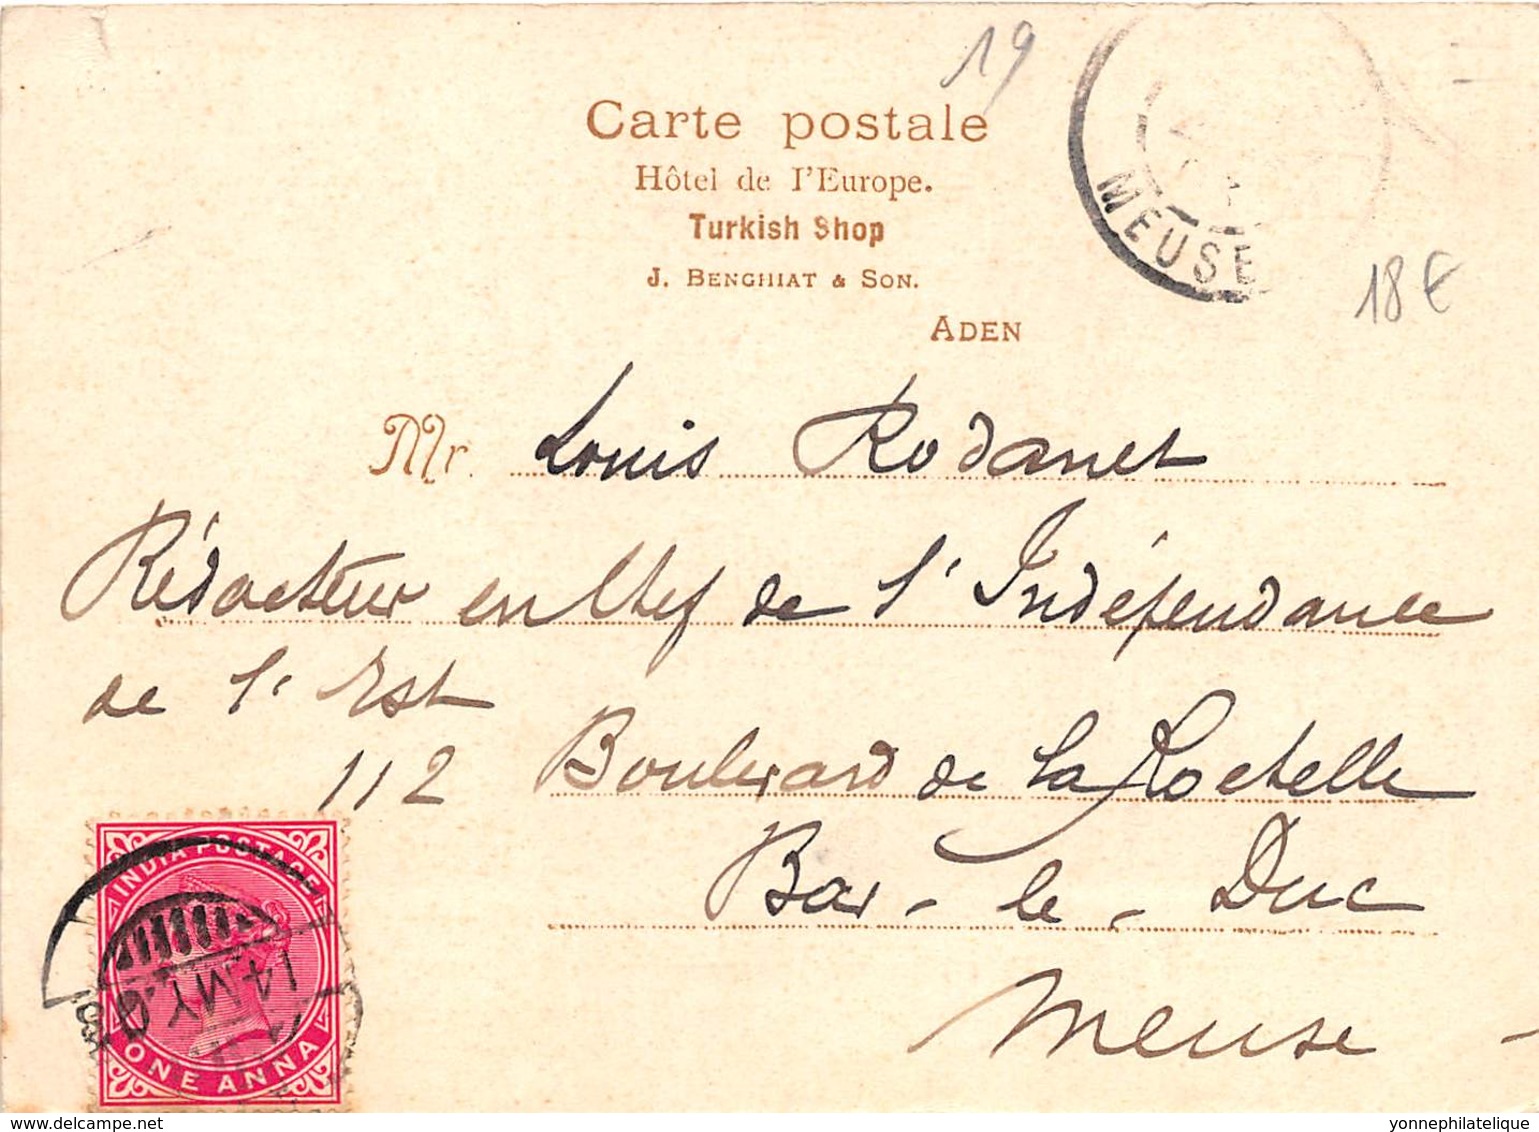 19
Carte postale
Hôtel de l'Europe.
Turkish Shop
J. Benghiat & Son.
Aden
MEUSE
18 €
Mr. Louis Rodanet
Rédacteur en Chef de l'Indépendance
de l'Est
112 Boulevard de La Rochelle
Bar-le-Duc
Meuse
INDIA POSTAGE
14 MY
ONE ANNA
yonnephilatelique